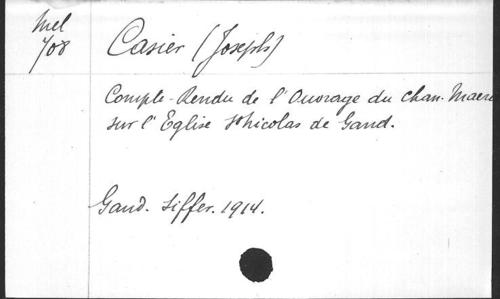 Mel
708
Casier (Joseph)
Compte-Rendu de l'Ouvrage du Chan. Maere
sur l'Eglise St Nicolas de Gand.
Gand. Siffer. 1914.